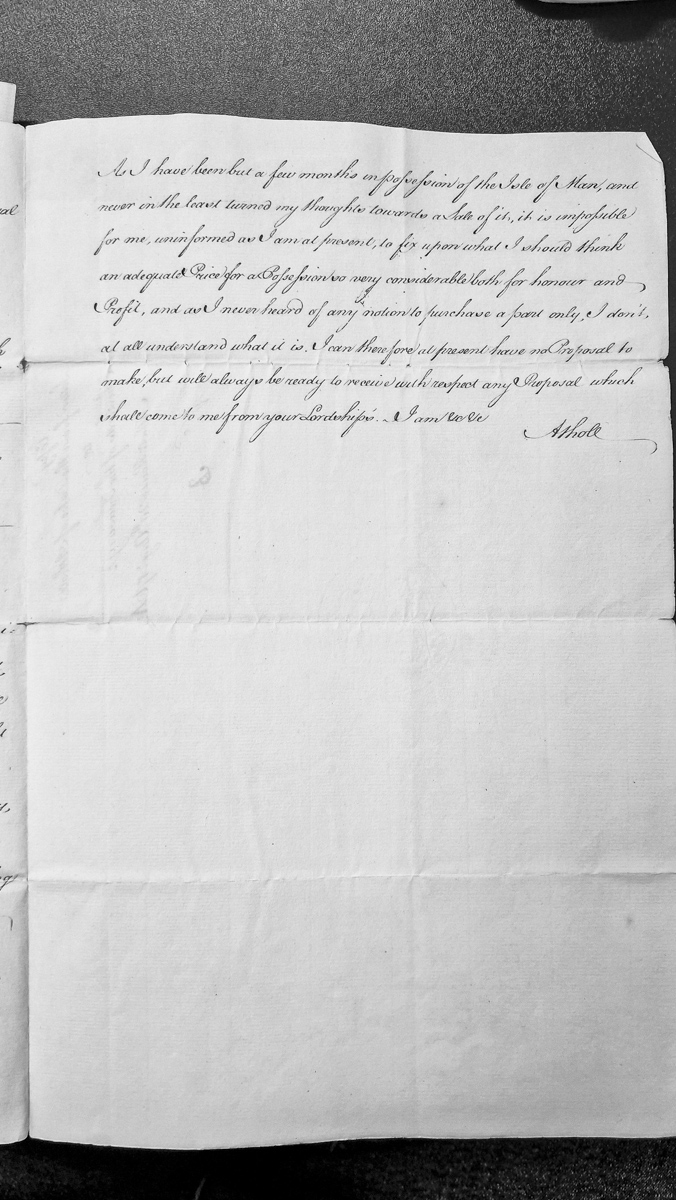 As I have been but a few months in possession of the Isle of Man, and
never in the least turned my thoughts towards a Sale of it, it is impossible
for me, uninformed as I am at present, to fix upon what I should think
an adequate Price for a Possession so very considerable both for honour and
Profit, and as I never heard of any notion to purchase a part only, I don't,
at all understand what it is. I can therefore at present have no Proposal to
make, but will always be ready to receive with respect any Proposal which
shall come to me from your Lordships. I am &c &c
Atholl